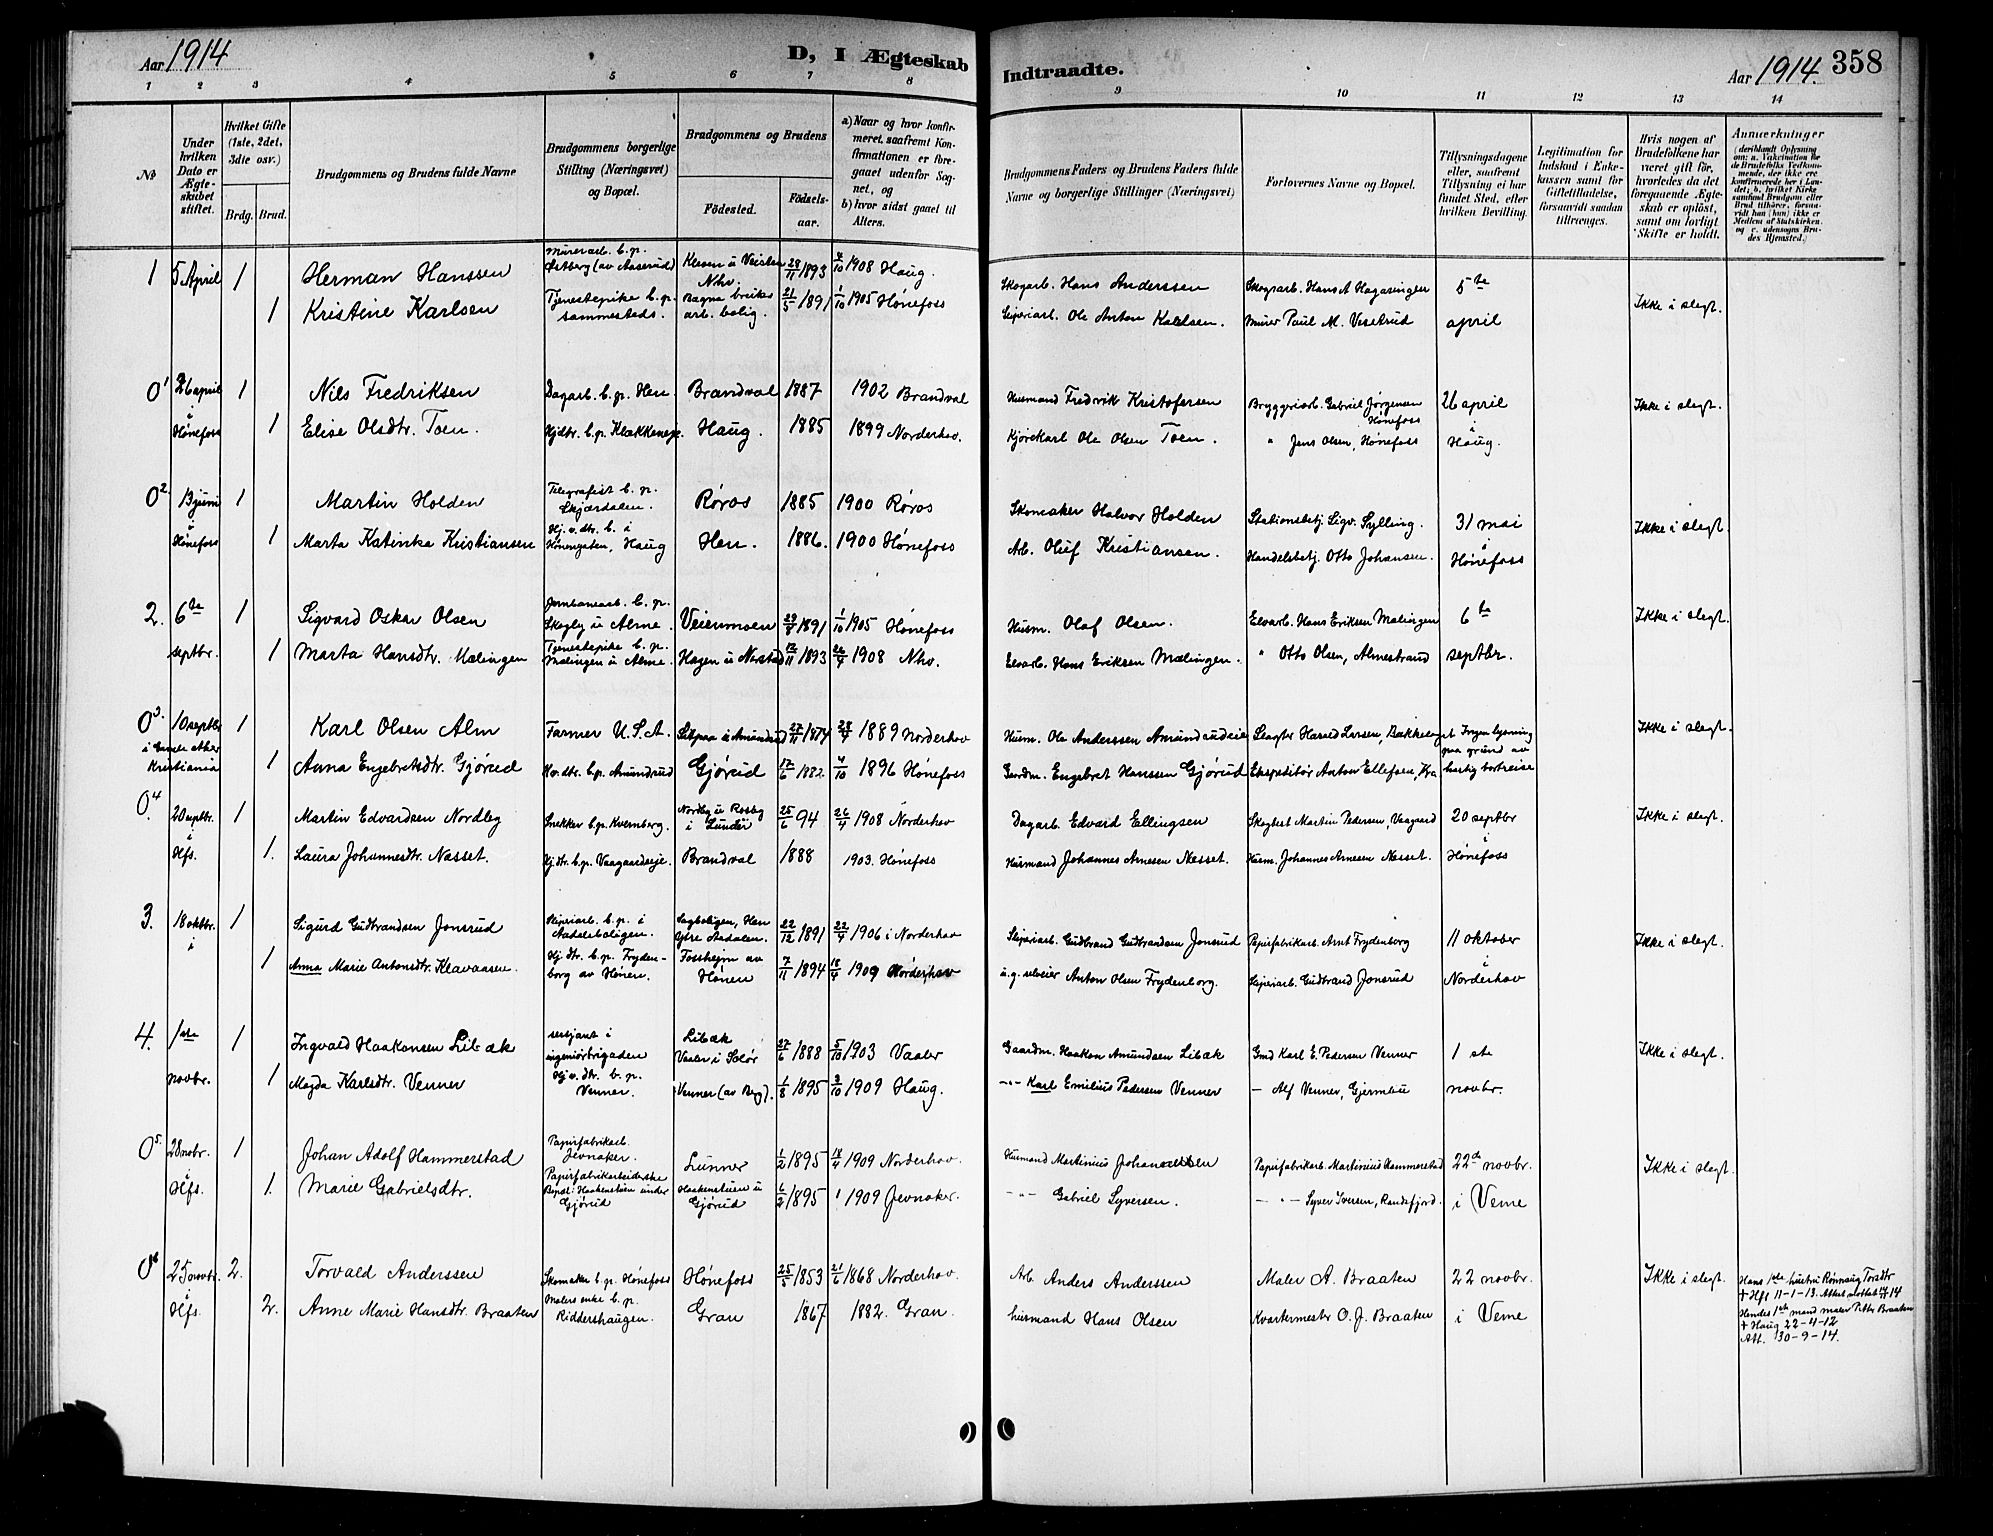 Aar 1914
D, I Ægteskab
Indtraadte.
Aar 1914. 358
1 2 3 4 5 6 7 8 9 10 11 12 13 14
No
Under hvilken Dato er Ægteskabet stiftet.
Hvilket Gifte (1ste, 2det, 3die osv.)
Brdg. Brud.
Brudgommens og Brudens fulde Navne
Brudgommens borgerlige Stilling (Næringsvei) og Bopæl.
Brudgommens og Brudens
Fødested.
Fødselsaar.
a) Naar og hvor konfirmeret, saafremt Konfirmationen er foregaaet udenfor Sognet, og
b) hvor sidst gaaet til Alters.
Brudgommens Faders og Brudens Faders fulde Navne og borgerlige Stillinger (Næringsvei)
Forlovernes Navne og Bopæl.
Tillysningsdagene eller, saafremt Tillysning ei har fundet Sted, efter hvilken Bevilling.
Legitimation for Indskud i Enkekassen samt for Giftetilladelse, forsaavidt saadan tiltrænges.
Hvis nogen af Brudefolkene har været gift før, hvorledes da det foregaaende Ægteskab er opløst, samt om lovligt Skifte er holdt.
Anmerkninger
1 5 April 1 Herman Hanssen Murerarb. b.p. Østberg (av Aaserud) Kleven u Veisten Nhv. 28/11 1893 4/10 1908 Haug. Skogarb. Hans Anderssen Skogsarb. Hans A Hagaringen 5te
1 Kristine Karlsen Tjenestepike b.p. sammesteds. Bagna bruks arb. bolig. 21/5 1891 1/10 1905 Hønefoss Sliperiarb. Ole Anton Karlsen. Murer Paul M. Vesetrud april Ikke i slegt.
01 26 april 1 Nils Fredriksen Dagarb. b.p. Hen Brandval 1887 1902 Brandval Husmand Fredrik Kristofersen Bryggriarb. Gabriel Jørgensen Hønefoss 26 april Ikke i slegt.
i Hønefoss 1 Elise Olsdtr. Toen. Hjdtr. b.p. Klækkeneje. Haug. 1885 1899 Norderhov. Kjørekarl Ole Olsen Toen. " Jens Olsen, Hønefoss i Haug.
02. 13 juni 1 Martin Holden Telegrafist b.p. Skjærdalen. Røros 1885 1900 Røros Skomaker Halvor Holden Stationsbetj. Sigv. Sylling. 31 mai Ikke i slegt.
i Hønefoss 1 Marta Katinka Kristiansen Hj.v.dtr. b. i Hønengaten, Haug Hen. 1886. 1900 Hønefoss Arb. Oluf Kristiansen. Handelsbetj. Otto Johansen. i Hønefoss
2. 6te 1 Sigvard Oskar Olsen Jernbanearb. b.p. Skogly u Alme. Veienmoen 29/8 1891 1/10 1905 Hønefoss Husm. Olaf Olsen. Elvarb. Hans Eriksen Mælingen 6te Ikke i slegt.
septbr. 1 Marta Hansdtr. Mælingen Tjenestepike b.p. Mælingen u Alme. Hagen u Nærstad 12/11 1893 26/4 1908 Nhv. Elvarb. Hans Eriksen Mælingen. " Otto Olsen, Almestrand septbr.
03. 10 septbr 1 Karl Olsen Alm Farmer U.S.A. Sætpaa u Amundrud 27/11 1874 28/4 1889 Norderhov Husm. Ole Anderssen Amundrudeie Slagter Harald Larsen, Bækkelaget Ingen lysning Ikke i slegt.
i Gamle Aker Kristiania 1 Anna Engebretsdtr. Gjørud Hv.dtr. b.p. Amundrud Gjørud 17/6 1882. 4/10 1896 Hønefoss Gaardm. Engebret Hanssen Gjørud Ekspeditør Anton Ellefsen, Kra paa grund av hastig bortreise
04. 20 septbr. 1 Martin Edvardsen Nordby Snekker b.p. Kvernberg. Nordby u Rosby i Lunder 25/6 94 26/4 1908 Norderhov Dagarb. Edvard Ellingsen Skogbest Martin Pedersen, Vaagaard 20 septbr Ikke i slegt.
i Hfs. 1. Laura Johannesdtr. Næsset. Hj.dtr. b.p. Vaagaardseje. Brandval 1888 1903. Hønefoss Husmand Johannes Arnesen Nesset. Husm. Johannes Arnesen Nesset. i Hønefoss
3. 18 oktbr. 1 Sigurd Gudbrandsen Jonsrud Sliperiarb. b.p. i Aadalsboligen. Sagboligen, Hen Ytre Aadalen. 22/12 1891 22/4 1906 i Norderhov Sliperiarb. Gudbrand Gudbrandsen Jonsrud Papirfabrikarb. Arnt Frydenborg 11 oktober Ikke i slegt.
i 1 Anna Marie Antonsdtr. Klavaasen. Hj.dtr. b.p. Frydenborg av Hønen. Fossheim av Hønen 7/11 1894 18/4 1909 Norderhov u.g. selveier Anton Olsen Frydenborg. Sliperiarb. Gudbrand Jonsrud i Norderhov
4. 1ste 1 Ingvald Haakonsen Libæk sersjant i ingeniørbrigaden Libæk Vaaler i Solør 27/6 1888 5/10 1903 Vaaler Gaardm. Haakon Amundsen Libæk Gmd Karl E. Pedersen Venner 1 ste Ikke i slegt.
novbr. 1 Magda Karlsdtr. Venner Hj.v.dtr. b.p. Venner. Venner (av Berg). 1/8 1895 3/10 1909 Haug. -"- Karl Emilius Pedersen Venner - Alf Venner, Gjermbu novbr.
05. 28 nobr. 1 Johan Adolf Hammerstad Papirfabrikarb. Jevnaker. Lunner 1/2 1895 18/4 1909 Norderhov. Husmand Martinius Johannessen Papirfabrikarb. Martinius Hammerstad 22de novbr. Ikke i slegt.
i Hfs. 1. Marie Gabrielsdtr. Papirfabrikarbeiderske Bopæl: Haakenstuen under Gjørud Haakenstuen u Gjørud 6/2 1895 1909 Jevnaker. -"- Gabriel Syversen. -"- Syver Iversen, Randsfjord. i Veme
06 25 novbr. 2. Torvald Anderssen Skomaker b.p. Hønefoss Hønefoss 25/5 1853 21/6 1868 Norderhov. Arb. Anders Anderssen Maler A. Braaten 22 novbr. Ikke i slegt. Hans 1ste hustru Rønnaug Torsdtr + Hfs 11-1-13.
Hfs. 2. Anne Marie Hansdtr. Braaten Malers enke b.p. Riddershaugen. Gran 1867 1882. Gran. husmand Hans Olsen Kvartermester O. J. Braaten i Veme Hendes 1ste mand maler Petter Braaten + Haug 22-4-12 Att. 30-9-14.